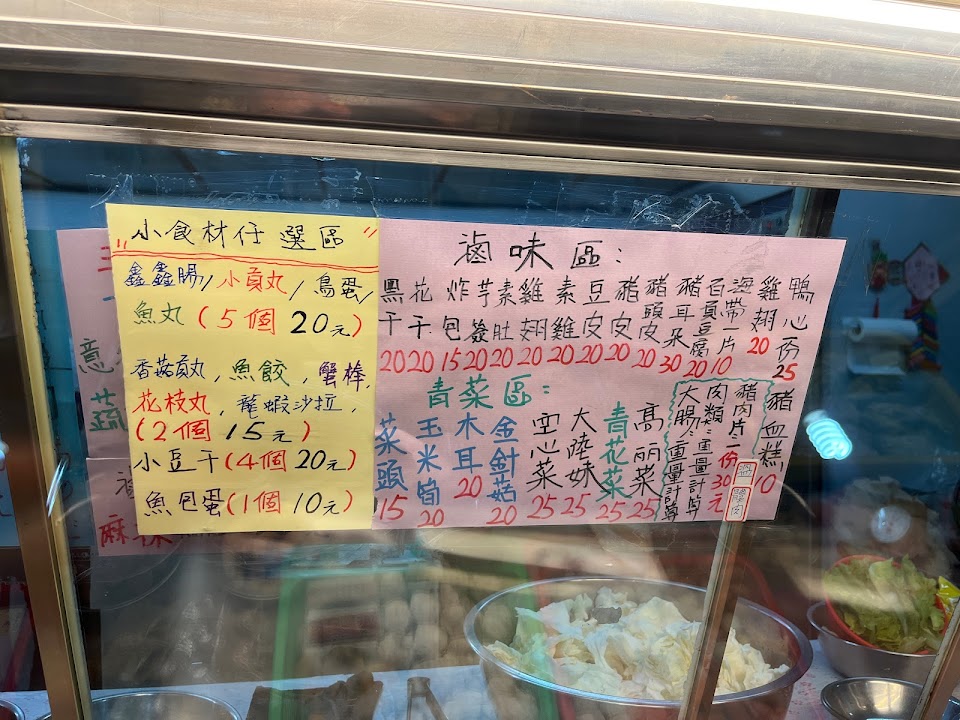 小食材仔 選區
鑫鑫腸/小貢丸/鳥蛋/
魚丸(5個20元)
香菇貢丸,魚餃,蟹棒,
花枝丸,龍蝦沙拉,
(2個15元)
小豆干(4個20元)
魚包蛋(1個10元)
滷味區:
黑干20
花干20
炸包15
芋簽20
素肚20
雞翅20
素雞20
豆皮20
豬皮20
豬頭皮20
豬耳朵30
百頁豆腐20
海帶一片10
雞翅20
鴨心份25
青菜區:
菜頭15
玉米筍20
木耳20
金針菇20
空心菜25
大陸妹25
青花菜25
高麗菜25
大腸:重量計算
肉類:重量計算
豬肉片:一份30元
豬血糕10
麻辣
蔬
意